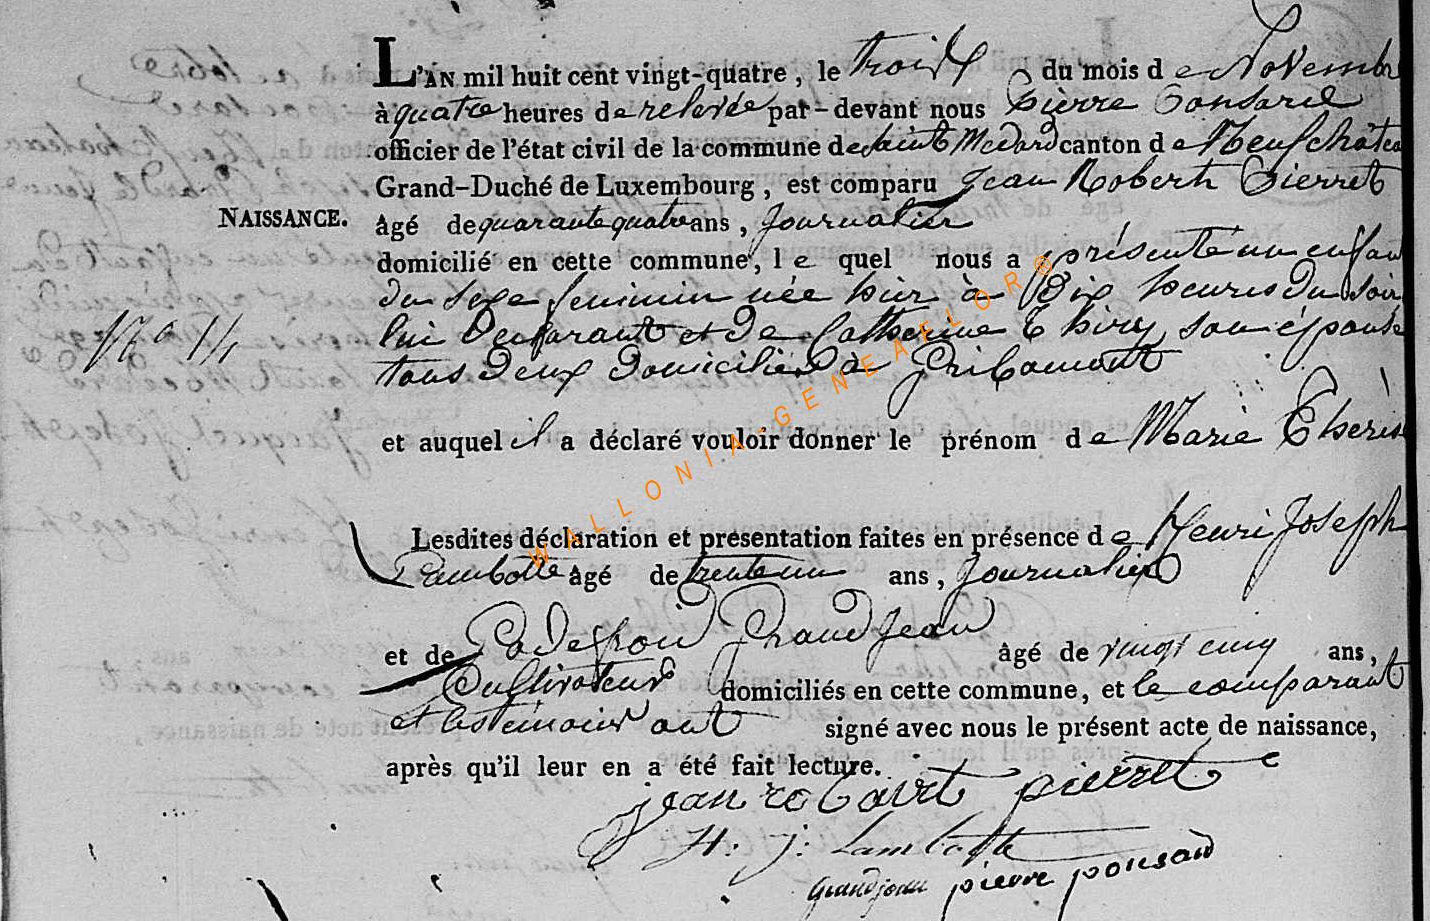 L'AN mil huit cent vingt-quatre, le trois du mois de Novembre
à quatre heures de relevée par-devant nous Pierre Ponsard
officier de l'état civil de la commune de Saint Medard canton de Neufchâteau
Grand-Duché de Luxembourg, est comparu Jean Robert Pierret
NAISSANCE. âgé de quarante quatre ans, Journalier
domicilié en cette commune, le quel nous a présenté un enfant
du sexe feminin née hier à Dix heures du soir
N° 14 lui Declarant et De Catherine Thiry son épouse
tous Deux Domiciliés à Gribomont
et auquel il a déclaré vouloir donner le prénom de Marie Thérèse
Lesdites déclaration et présentation faites en présence de Henri Joseph
Lambotte âgé de trente un ans, Journalier
et de Godefroid Grand Jean âgé de vingt cinq ans,
Cultivateur domiciliés en cette commune, et le comparant
et les temoins ont signé avec nous le présent acte de naissance,
après qu'il leur en a été fait lecture.
jean robert pierret
H. j. Lambotte
Grandjean pierre ponsard
WALLONIA-GENEAFLOR®